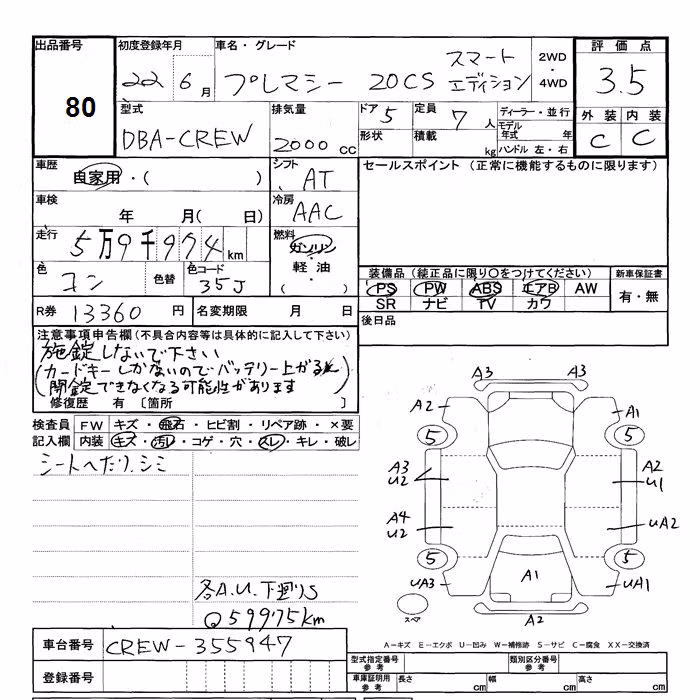 出品番号 初度登録年月 車名・グレード 評価点
80 22 6月 プレマシー 20CS スマートエディション 2WD・4WD 3.5
型式 排気量 ドア 5 定員 7人 ディーラー・並行 外装 内装
DBA-CREW 2000cc 形状 積載 kg モデル年式 年 C C
ハンドル 左・右
車歴 自家用・( ) シフト AT セールスポイント (正常に機能するものに限ります)
車検 年 月( 日) 冷房 AAC
走行 5万9千974km 燃料 ガソリン・軽油・( )
色 コン 色替 色コード 35J 装備品 (純正品に限り○をつけてください) 新車保証書
PS PW ABS エアB AW 有・無
R券 13360円 名変期限 月 日 SR ナビ TV カワ
後日品
注意事項申告欄(不具合内容等は具体的に記入して下さい)
施錠しないで下さい
(カードキーしかないのでバッテリー上がると
開錠できなくなる可能性があります)
修復歴 有 〔箇所 〕
検査員 FW キズ・飛石・ヒビ割・リペア跡・×要
記入欄 内装 キズ・汚レ・コゲ・穴・スレ・キレ・破レ
シートへたり.シミ
A3 A3
A2 A1
5 5
A3 U2 A2 U1
A4 U2 UA2
5 5
UA3 A1 UA1
スペア A2
各A.U.下廻りS
Q59975km
車台番号 CREW-355947
A-キズ E-エクボ U-凹み W-補修跡 S-サビ C-腐食 XX-交換済
登録番号 型式指定番号 参考 類別区分番号 参考
車庫証明用 参考 長さ cm 幅 cm 高さ cm